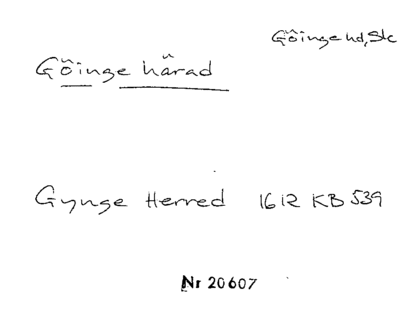 Göinge hd, Sk
Göinge härad
Gynge Herred 1612 KB 539
Nr 20607